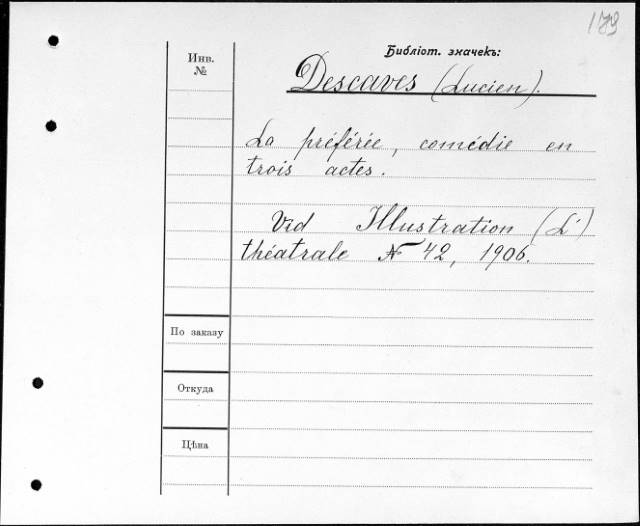 179
Библіот. значекъ:
Инв.
№
Descaves (Lucien).
La préférée, comédie en
trois actes.
Vid Illustration (L')
théatrale N 42, 1906.
По заказу
Откуда
Цѣна